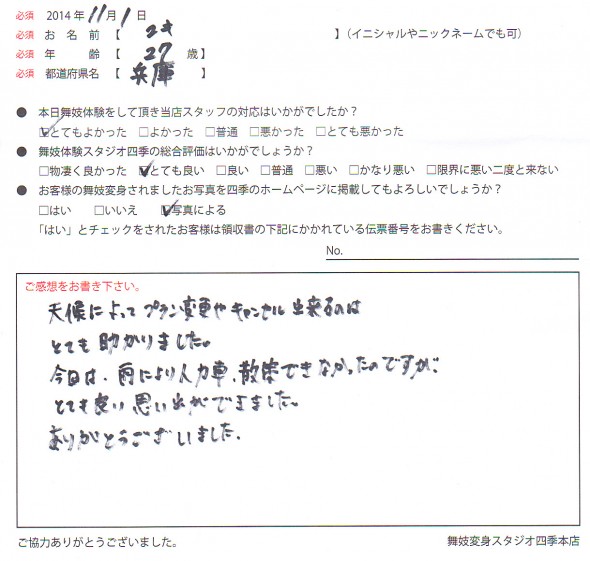 必須 2014年11月1日
必須 お名前【 】（イニシャルやニックネームでも可）
必須 年齢【 27 歳】
必須 都道府県名【 兵庫 】
● 本日舞妓体験をして頂き当店スタッフの対応はいかがでしたか？
☑とてもよかった □よかった □普通 □悪かった □とても悪かった
● 舞妓体験スタジオ四季の総合評価はいかがでしょうか？
□物凄く良かった ☑とても良い □良い □普通 □悪い □かなり悪い □限界に悪い二度と来ない
● お客様の舞妓変身されましたお写真を四季のホームページに掲載してもよろしいでしょうか？
□はい □いいえ ☑写真による
「はい」とチェックをされたお客様は領収書の下記にかかれている伝票番号をお書きください。
No.
ご感想をお書き下さい。
天候によってプラン変更やキャンセル出来るのは
とても助かりました。
今日は、雨により人力車、散策できなかったのですが、
とても良い思い出ができました。
ありがとうございました。
ご協力ありがとうございました。
舞妓変身スタジオ四季本店